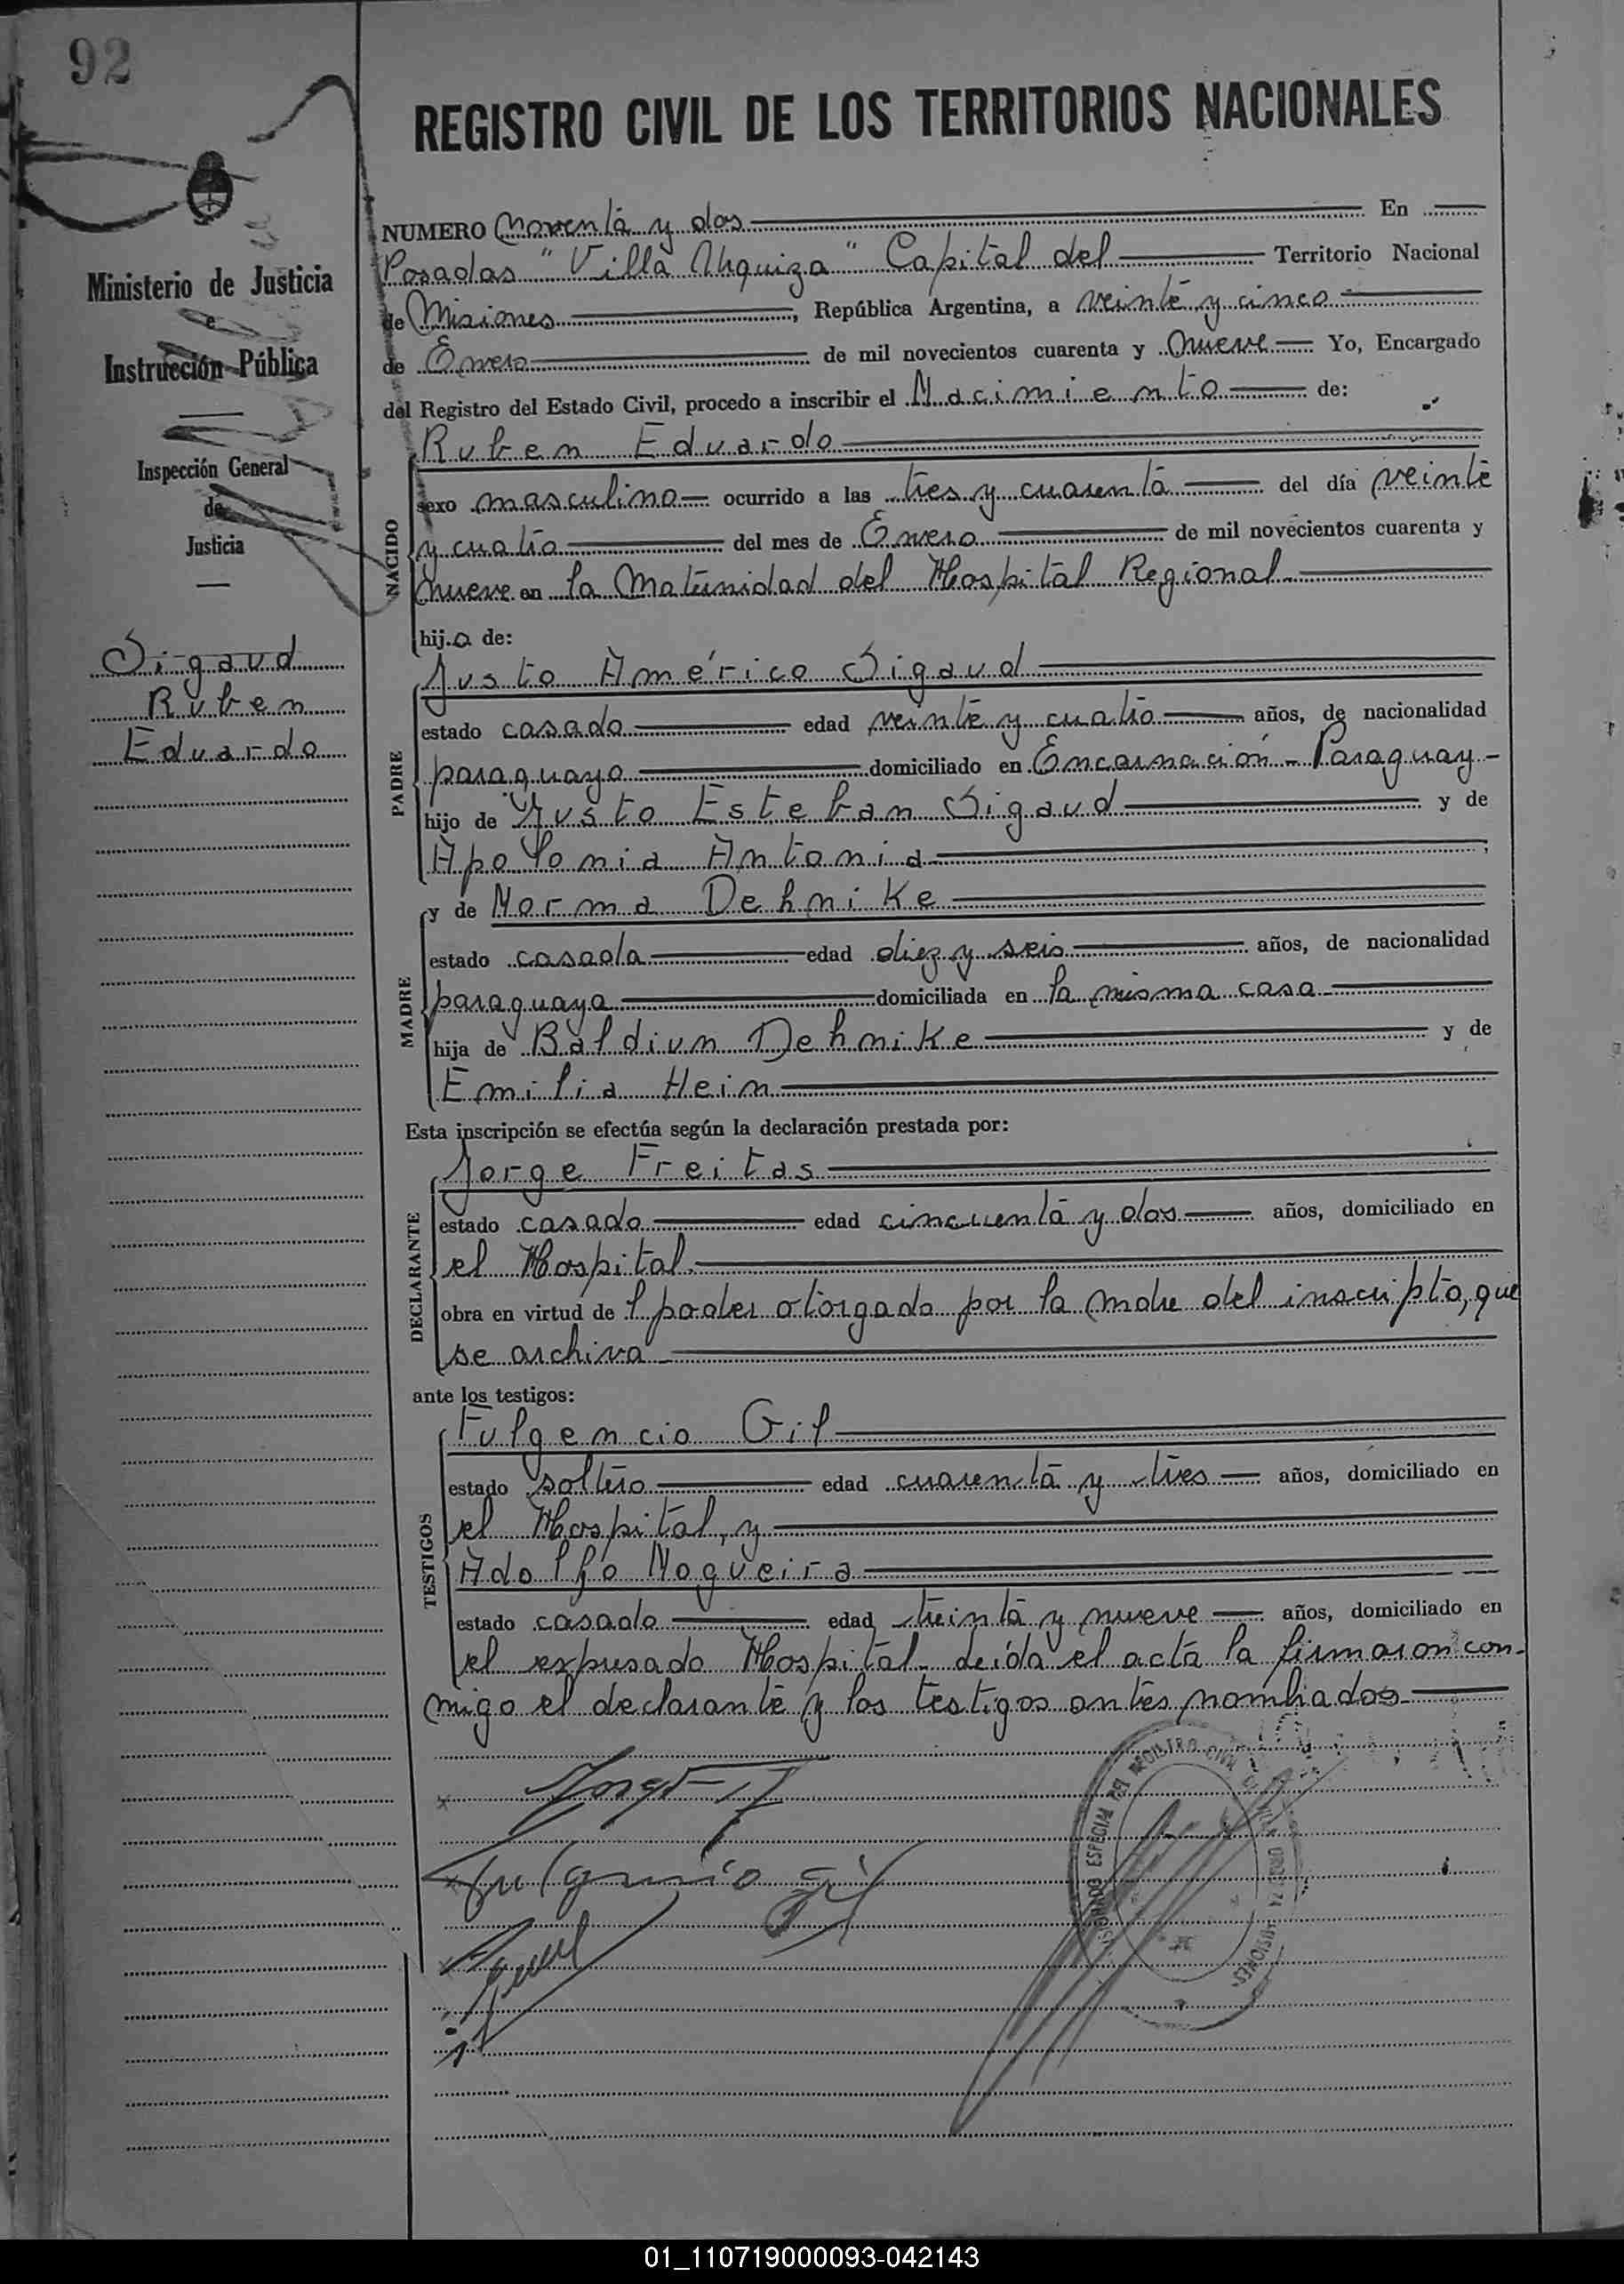 92
REGISTRO CIVIL DE LOS TERRITORIOS NACIONALES
Ministerio de Justicia
e
Instrucción Pública
Inspección General
de
Justicia
Sigaud
Ruben
Eduardo
NUMERO noventa y dos En
Posadas "Villa Urquiza" Capital del Territorio Nacional
de Misiones, República Argentina, a veinte y cinco
de Enero de mil novecientos cuarenta y nueve Yo, Encargado
del Registro del Estado Civil, procedo a inscribir el Nacimiento de:
NACIDO
Ruben Eduardo
sexo masculino ocurrido a las tres y cuarenta del día veinte
y cuatro del mes de Enero de mil novecientos cuarenta y
nueve en la Maternidad del Hospital Regional
hijo de:
PADRE
Justo Américo Sigaud
estado casado edad veinte y cuatro años, de nacionalidad
paraguayo domiciliado en Encarnación - Paraguay -
hijo de Justo Esteban Sigaud y de
Apolonia Antonia ;
MADRE
y de Norma Dehnike
estado casada edad diez y seis años, de nacionalidad
paraguaya domiciliada en la misma casa
hija de Baldiun Dehnike y de
Emilia Hein
Esta inscripción se efectúa según la declaración prestada por:
DECLARANTE
Jorge Freitas
estado casado edad cincuenta y dos años, domiciliado en
el Hospital
obra en virtud del poder otorgado por la madre del inscripto, que
se archiva
ante los testigos:
TESTIGOS
Fulgencio Gil
estado soltero edad cuarenta y tres años, domiciliado en
el Hospital, y
Adolfo Nogueira
estado casado edad treinta y nueve años, domiciliado en
el expresado Hospital. Leída el acta la firmaron con-
migo el declarante y los testigos antes nombrados
Fulgencio Gil
ESPECIAL DEL REGISTRO CIVIL
MISIONES
01_110719000093-042143